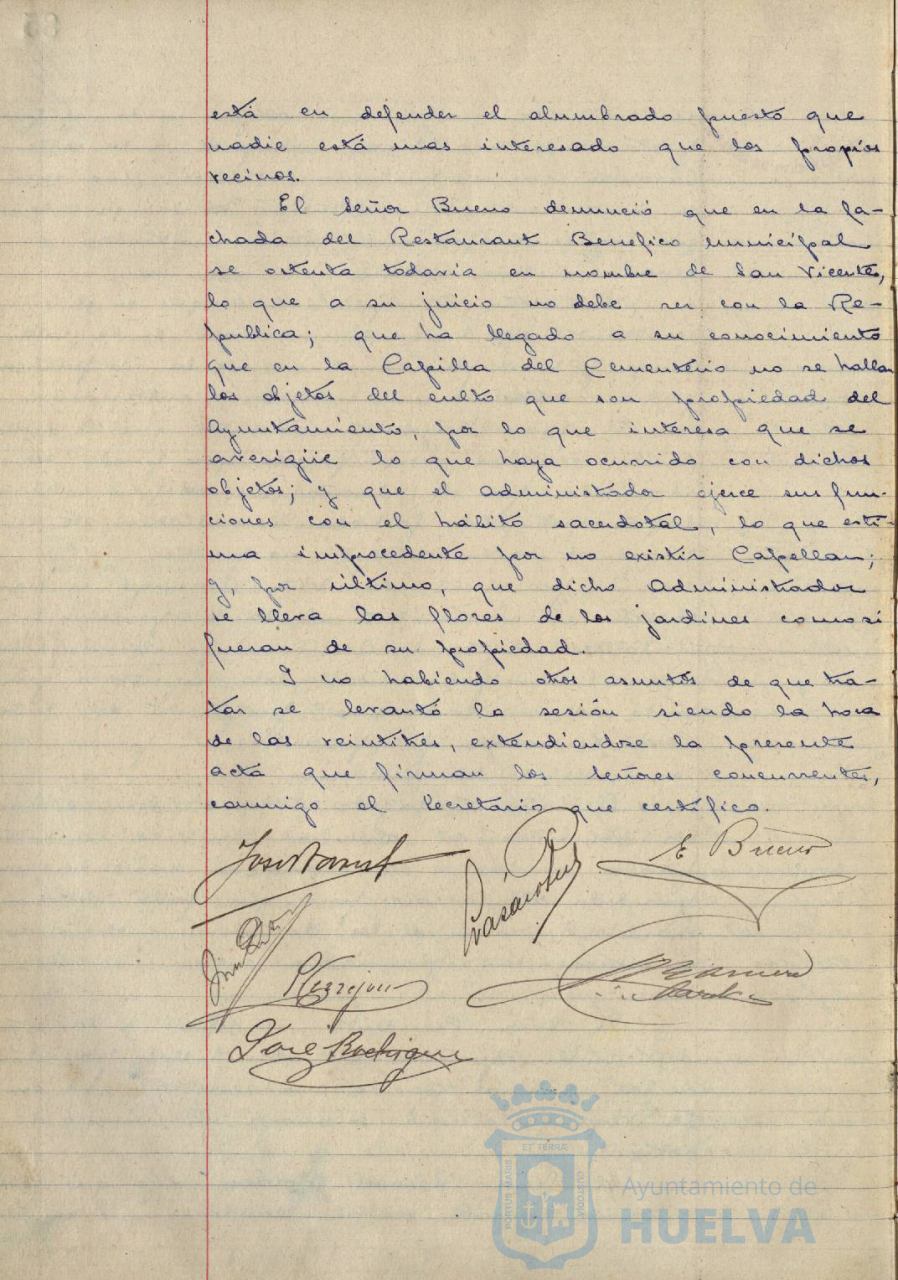 está en defender el alumbrado puesto que
nadie está mas interesado que los propios
vecinos.
El Señor Bueno denunció que en la fa-
chada del Restaurant Benefico Municipal
se ostenta todavia en nombre de San Vicente,
lo que a su juicio no debe ser con la Re-
publica; que ha llegado a su conocimiento
que en la Capilla del Cementerio no se hallan
los objetos del culto que son propiedad del
Ayuntamiento, por lo que interesa que se
averigüe lo que haya ocurrido con dichos
objetos; y que el administrador ejerce sus fun-
ciones con el hábito sacerdotal, lo que esti-
ma improcedente por no existir Capellan;
y, por último, que dicho Administrador
se lleva las flores de los jardines como si
fueran de su propiedad.
I no habiendo otros asuntos de que tra-
tar se levantó la sesión siendo la hora
de las veintitres, extendiendose la presente
acta que firman los señores concurrentes,
conmigo el Secretario que certifico.
E Bueno
José Rodriguez
ET TERRÆ
PORTUS MARIS
CUSTODIA
Ayuntamiento de
HUELVA